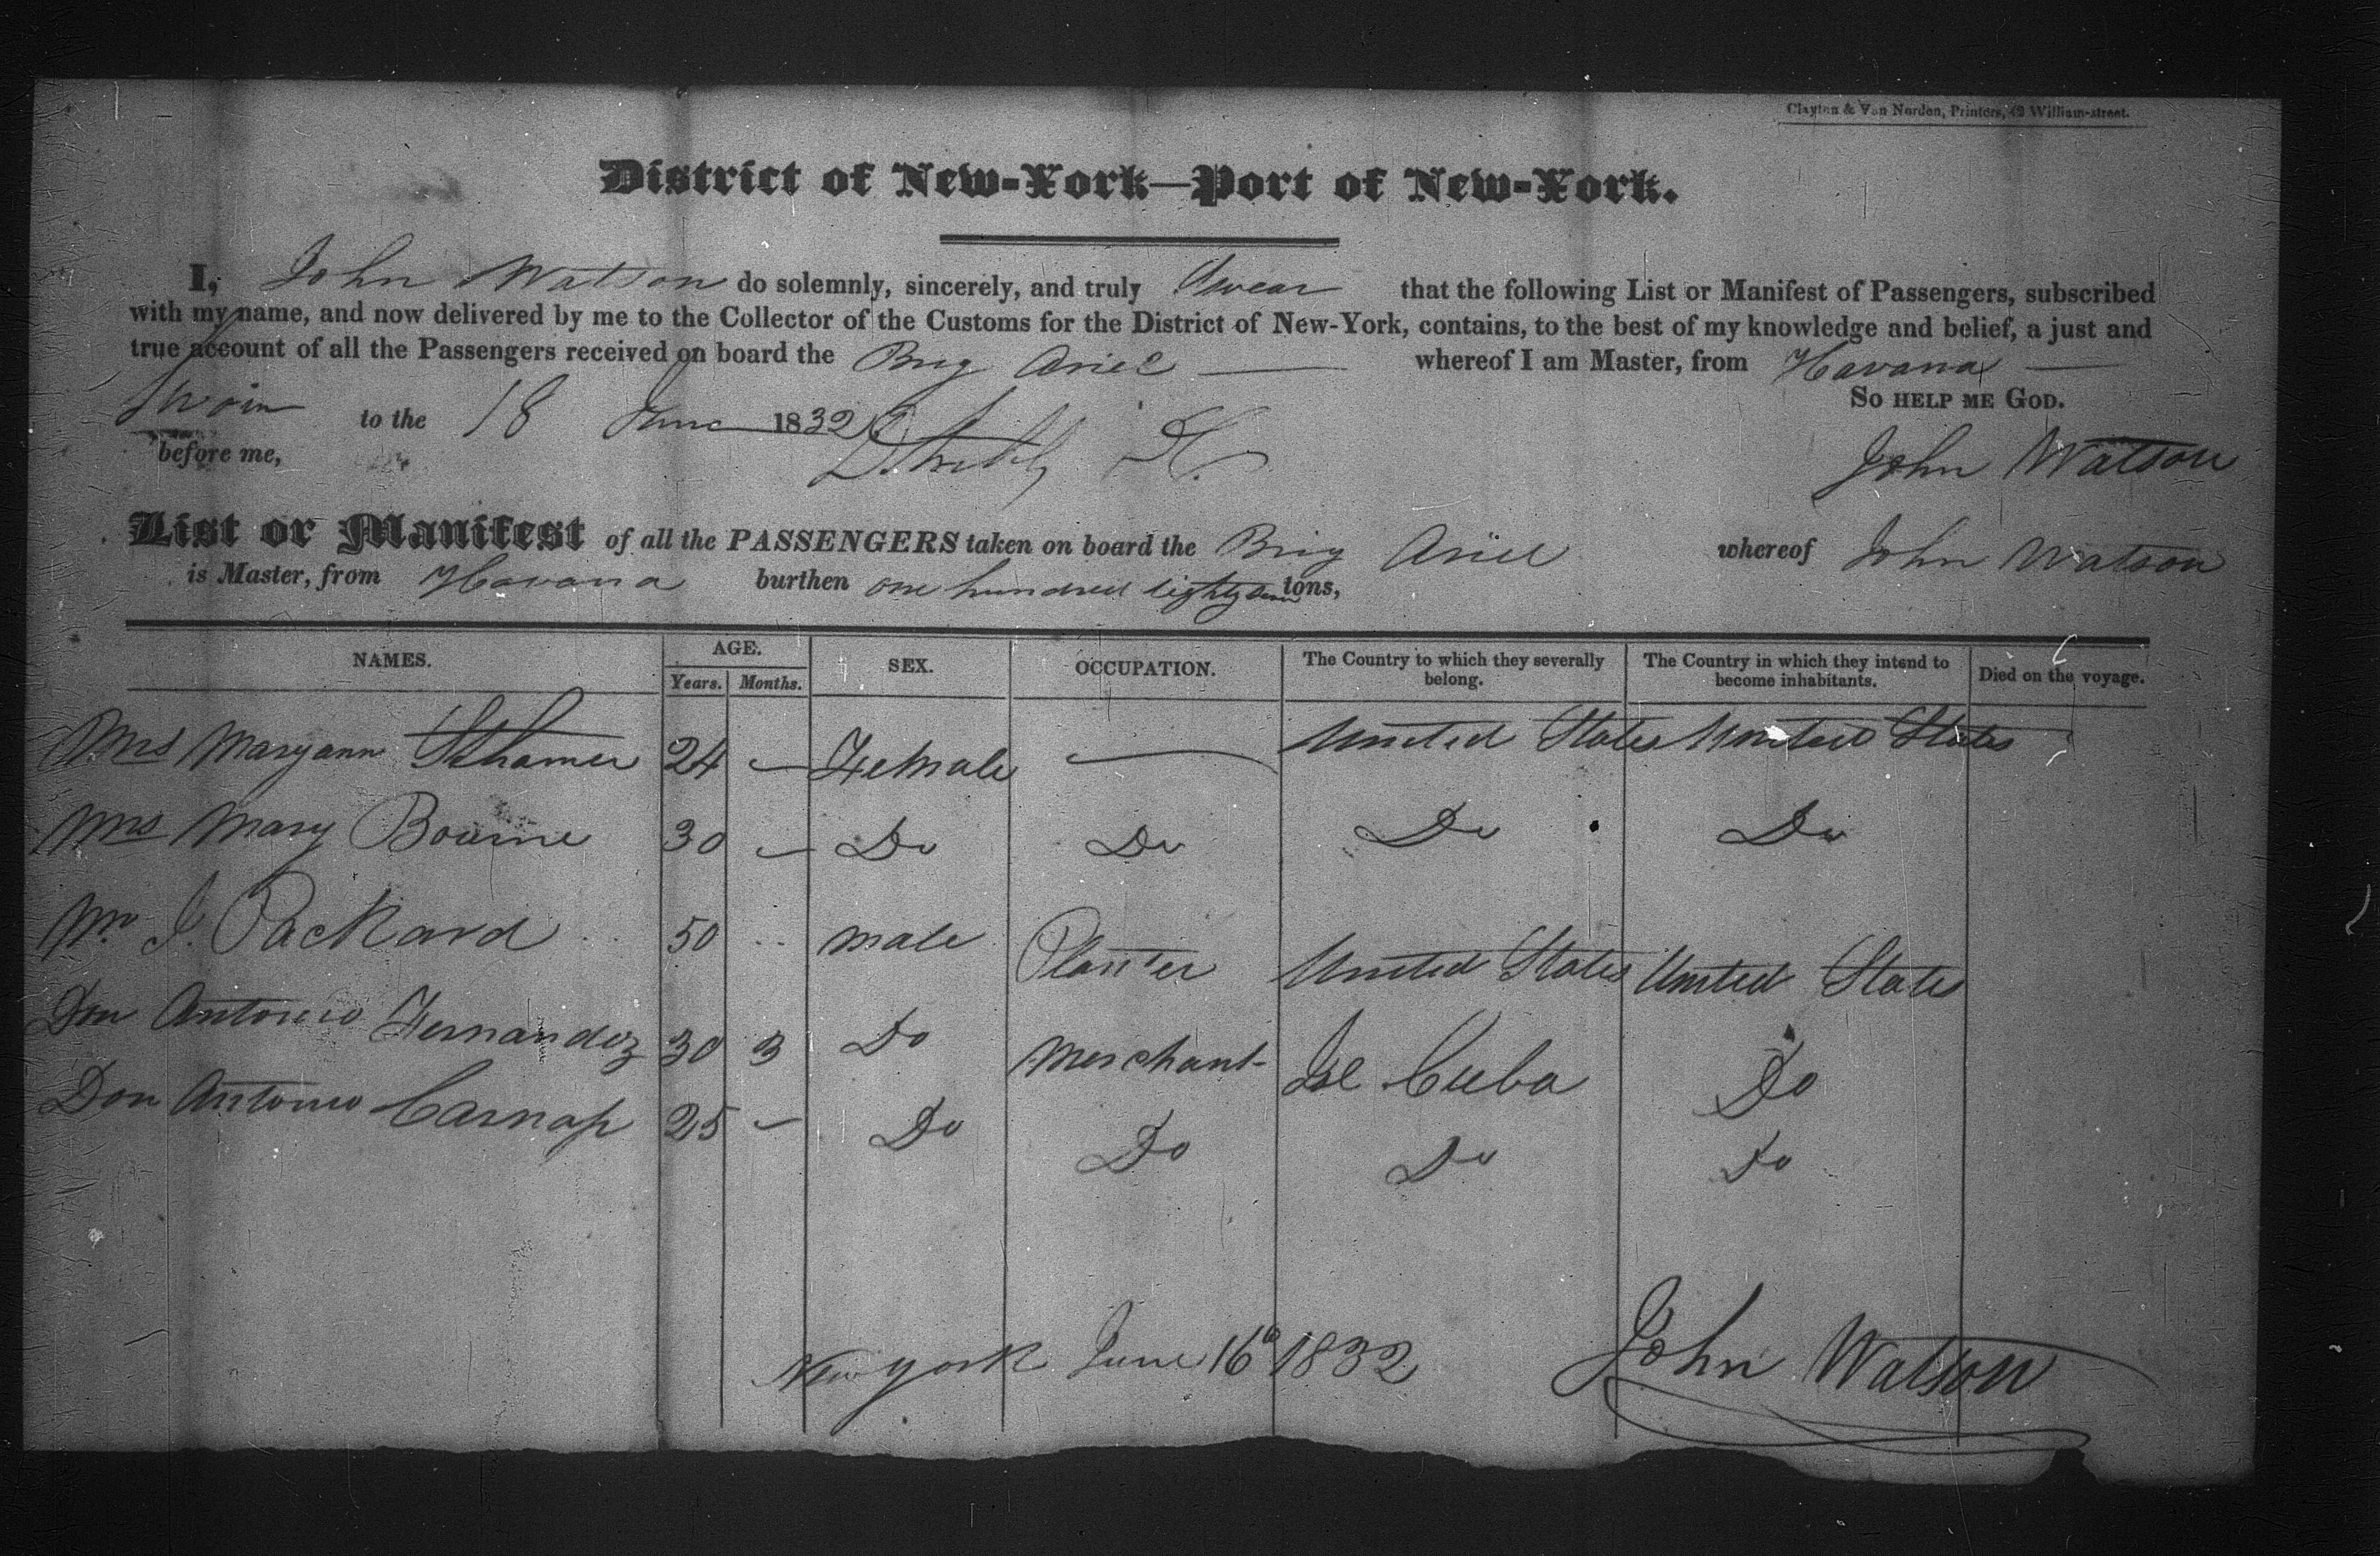 Clayton & Van Norden, Printers, 42 William-street.
District of New-York—Port of New-York.
I, John Watson do solemnly, sincerely, and truly Swear that the following List or Manifest of Passengers, subscribed
with my name, and now delivered by me to the Collector of the Customs for the District of New-York, contains, to the best of my knowledge and belief, a just and
true account of all the Passengers received on board the Brig Ariel — whereof I am Master, from Havana —
So help me God.
Sworn to the 18 June 1832
before me,
John Watson
List or Manifest of all the PASSENGERS taken on board the Brig Ariel whereof John Watson
is Master, from Havana burthen one hundred eighty tons,
NAMES. AGE. SEX. OCCUPATION. The Country to which they severally belong. The Country in which they intend to become inhabitants. Died on the voyage.
Years. Months.
Mrs Maryann 24 — Female — United States United States
Mrs Mary Bourne 30 — Do Do Do Do
Mr J. Packard 50 .. male Planter United States United States
Don Antonio Fernandez 30 3 Do Merchant Isl Cuba Do
Don Antonio 25 — Do Do Do Do
New york June 16 1832 John Watson